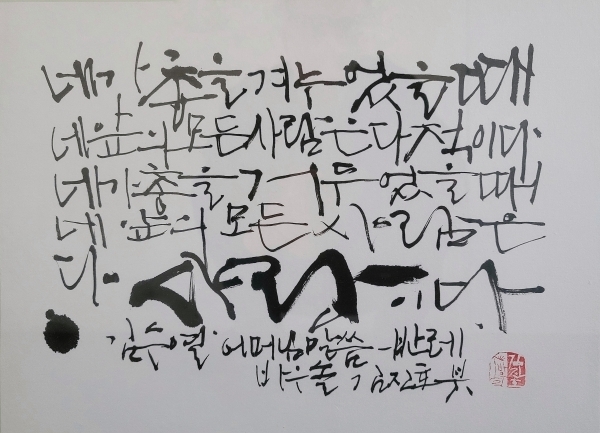 네가 총을 겨누었을 때
네 앞의 모든 사람은 다 적이다.
네가 총을 거두었을 때
네 앞의 모든 사람은
다. 사람이다.
김수열. 어머님 말씀 -반레
바우솔 김진호 붓